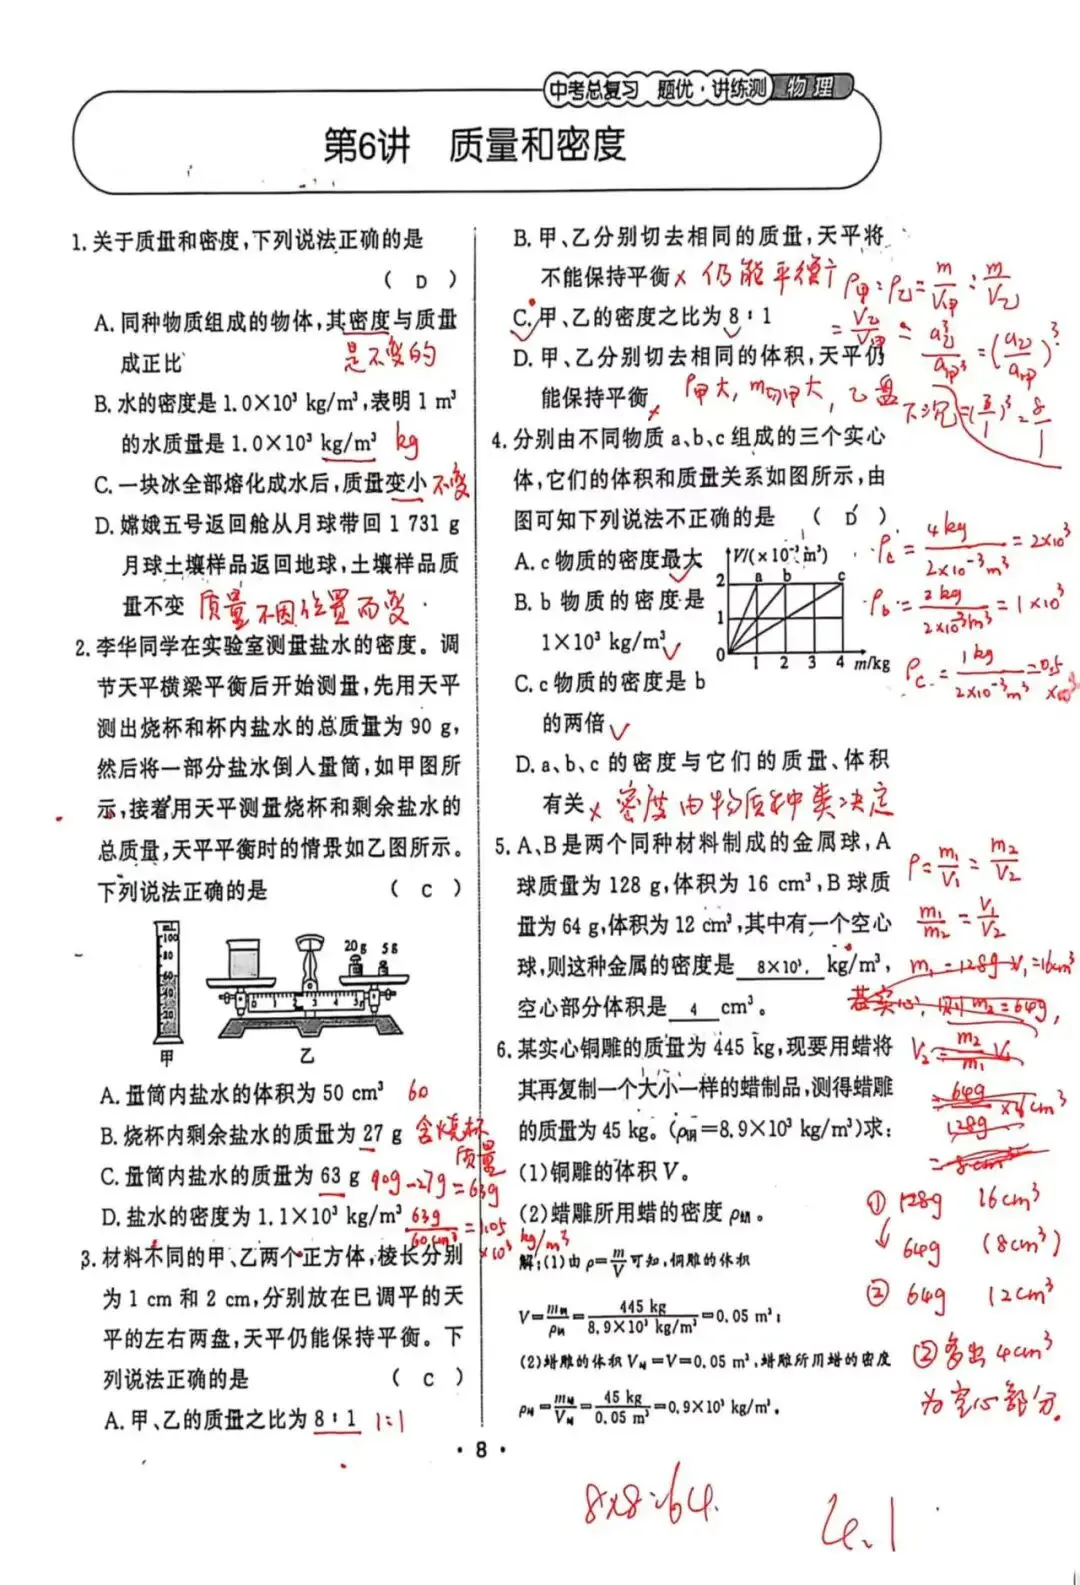 中考总复习 题优·讲练测 物理
第6讲 质量和密度
1.关于质量和密度,下列说法正确的是
( D )
A.同种物质组成的物体,其密度与质量
成正比 是不变的
B.水的密度是1.0×10³ kg/m³,表明1 m³
的水质量是1.0×10³ kg/m³ kg
C.一块冰全部熔化成水后,质量变小 不变
D.嫦娥五号返回舱从月球带回1 731 g
月球土壤样品返回地球,土壤样品质
量不变 质量不因位置而变.
2.李华同学在实验室测量盐水的密度。调
节天平横梁平衡后开始测量,先用天平
测出烧杯和杯内盐水的总质量为90 g,
然后将一部分盐水倒人量筒,如甲图所
示,接着用天平测量烧杯和剩余盐水的
总质量,天平平衡时的情景如乙图所示。
下列说法正确的是 ( C )
mL
100
80
60
40
20
20g 5g
0 1 2 3 4 5g
甲 乙
A.量筒内盐水的体积为50 cm³ 60
B.烧杯内剩余盐水的质量为27 g 含烧杯
质量
C.量筒内盐水的质量为63 g 90g-27g=63g
D.盐水的密度为1.1×10³ kg/m³ 63g/60cm³=1.05
×10³ kg/m³
3.材料不同的甲、乙两个正方体,棱长分别
为1 cm和2 cm,分别放在已调平的天
平的左右两盘,天平仍能保持平衡。下
列说法正确的是 ( C )
A.甲、乙的质量之比为8∶1 1:1
B.甲、乙分别切去相同的质量,天平将
不能保持平衡 × 仍能平衡
C.甲、乙的密度之比为8∶1
D.甲、乙分别切去相同的体积,天平仍
能保持平衡 × ρ甲大, m切甲大, 乙盘
下沉
ρ甲:ρ乙=m/V甲:m/V乙
=V乙/V甲=a乙³/a甲³=(a乙/a甲)³
=(2/1)³=8/1
4.分别由不同物质a、b、c组成的三个实心
体,它们的体积和质量关系如图所示,由
图可知下列说法不正确的是 ( D )
A.c物质的密度最大
B.b物质的密度是
1×10³ kg/m³
C.c物质的密度是b
的两倍
V/(×10⁻³ m³)
a b c
2
1
0 1 2 3 4 m/kg
D.a、b、c的密度与它们的质量、体积
有关 × 密度由物质种类决定
ρc=4kg/2×10⁻³m³=2×10³
ρb=2kg/2×10³m³=1×10³
ρc=1kg/2×10⁻³m³=0.5
×10³
5.A、B是两个同种材料制成的金属球,A
球质量为128 g,体积为16 cm³,B球质
量为64 g,体积为12 cm³,其中有一个空心
球,则这种金属的密度是 8×10³ kg/m³,
空心部分体积是 4 cm³。
ρ=m₁/V₁=m₂/V₂
m₁/m₂=V₁/V₂
m₁=128g V₁=16cm³
若实心,则m₂=64g,
V₂=m₂/m₁ V₁
=64g/128g×16cm³
=8cm³
① 128g 16cm³
64g (8cm³)
② 64g 12cm³
②多出4cm³
为空心部分.
6.某实心铜雕的质量为445 kg,现要用蜡将
其再复制一个大小一样的蜡制品,测得蜡雕
的质量为45 kg。(ρ铜=8.9×10³ kg/m³)求:
(1)铜雕的体积V。
(2)蜡雕所用蜡的密度ρ蜡。
解:(1)由ρ=m/V可知,铜雕的体积
V=m铜/ρ铜=445 kg/8.9×10³ kg/m³=0.05 m³;
(2)蜡雕的体积V蜡=V=0.05 m³,蜡雕所用蜡的密度
ρ蜡=m蜡/V蜡=45 kg/0.05 m³=0.9×10³ kg/m³。
· 8 ·
8×8=64.
4.1